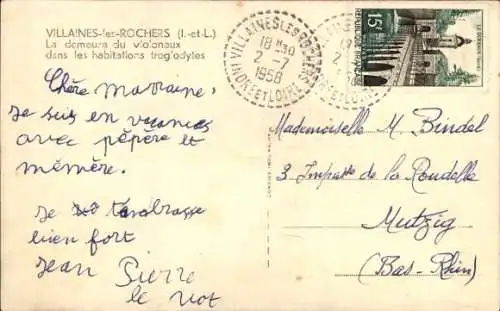 VILLAINES-les-ROCHERS (I.-et-L.)
La demeure du violoneux
dans les habitations troglodytes
Chère marraine,
je suis en vacances
avec pépère et
mémère.
je t'embrasse
bien fort
Jean Pierre
le
VILLAINES LES ROCHERS
18 H30
2 -7
1958
INDRE ET LOIRE
15F
REPUBLIQUE FRANÇAISE
LE QUESNOY (NORD)
Mademoiselle M. Bindel
3 Impasse de la Roudelle
Mutzig
(Bas-Rhin)